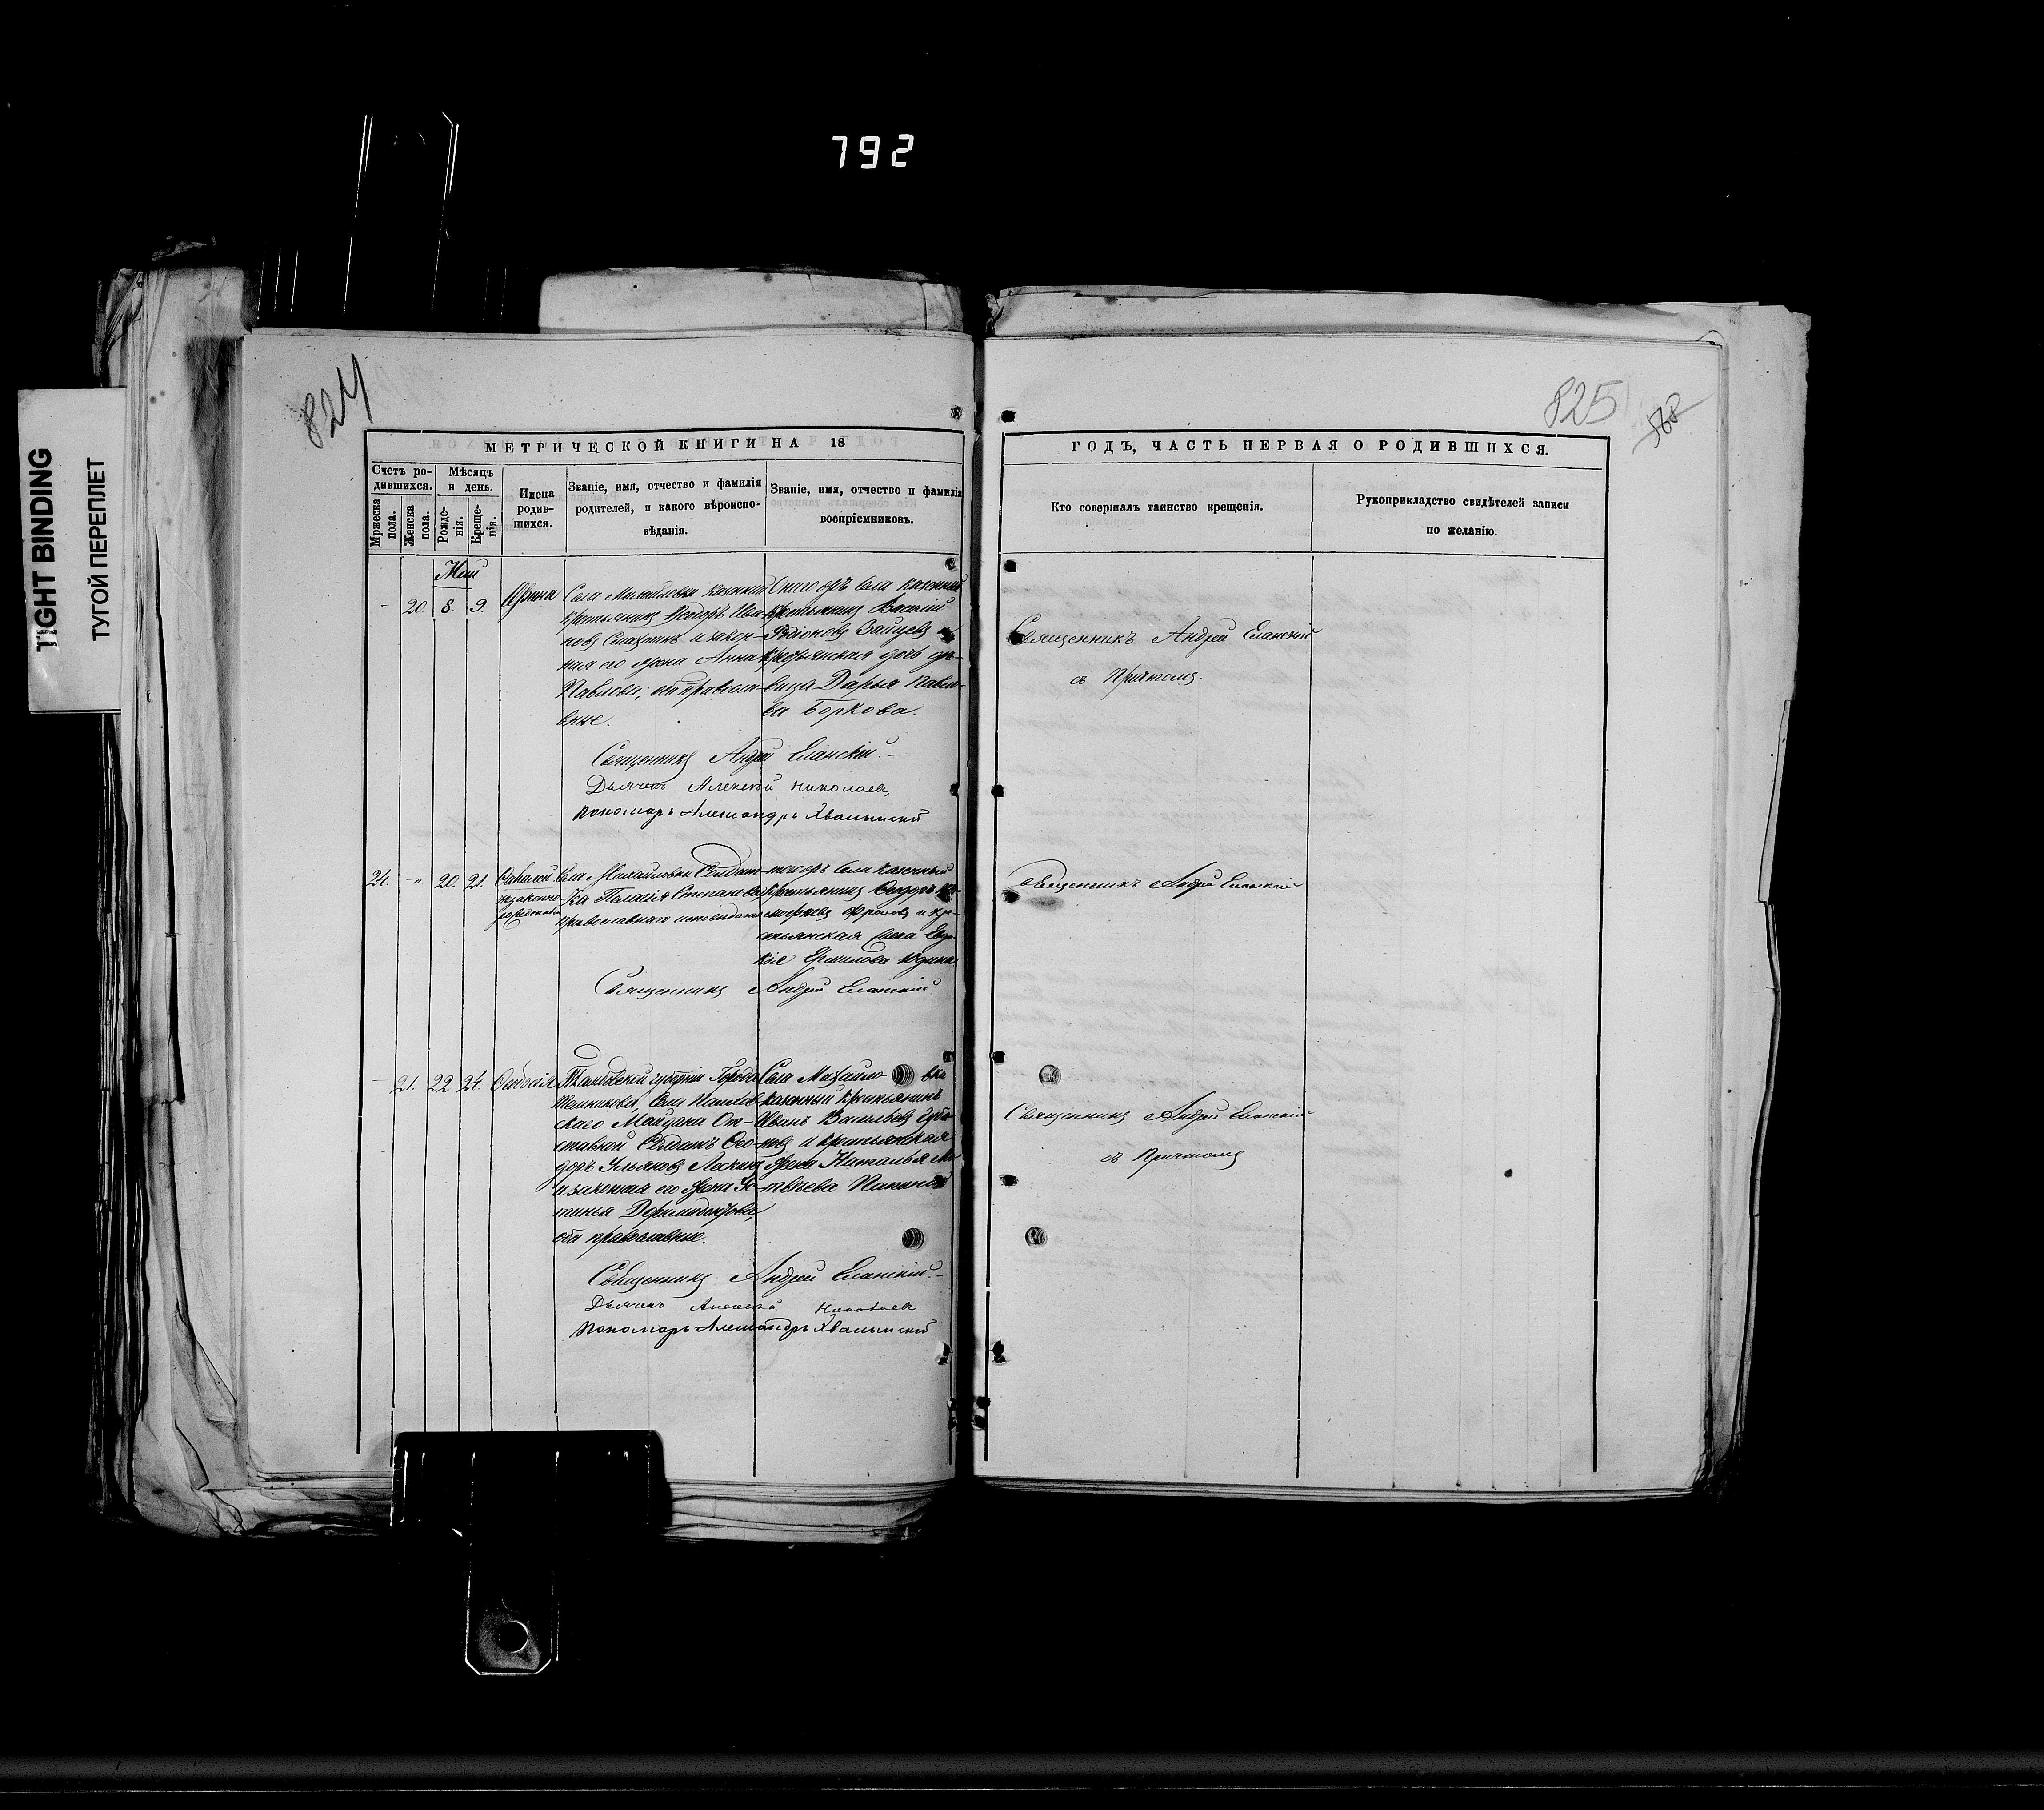 792
TIGHT BINDING
ТУГОЙ ПЕРЕПЛЕТ
824
МЕТРИЧЕСКОЙ КНИГИ НА 18
Счетъ родившихся.
Мужеска пола.
Женска пола.
Мѣсяцъ и день.
Рожденія.
Крещенія.
Имена родившихся.
Званіе, имя, отчество и фамилія
родителей, и какого вѣроиспо-
вѣданія.
Званіе, имя, отчество и фамилія
воспріемниковъ.
Май
- 20. 8. 9. Ирина
Села Михайловки казенный
крестьянинъ Ѳеодоръ Ива-
новъ и закон-
ная его жена Анна
Павлова, оба правосла-
вные.
Онаго жъ села казенный
крестьянинъ Василій
Родіоновъ Зайцевъ и
крестьянская дочь дѣ-
вица Дарья Павло-
ва Боркова.
Священникъ Андрей Еланскій.-
Дьячекъ Алексей Николаевъ,
Пономарь Александръ Хвалынскій
24. - " 20. 21.
незаконно-
рожденный
Села Михайловки Солдат-
ка Пелагія Степанова
православнаго исповеданія
тогожъ села казенный
крестьянинъ Ѳеодоръ
Фроловъ и кре-
стьянская жена Евдо-
кія Ермилова Юдина
Священникъ Андрей Еланскій
- 21. 22 24.
Тамбовской губерніи Города
Темникова, Села
скаго Майдана От-
ставной Солдатъ Ѳео-
доръ Ульяновъ Лескинъ
и законная его жена Ус-
тинья
оба православные.
Села Михайло вки
казенный крестьянинъ
Иванъ Васильевъ
новъ и крестьянская
жена Наталья Ма-
твѣева
Священникъ Андрей Еланскій.-
Дьячекъ Алексей Николаевъ
Пономарь Александръ Хвалынскій
825
168
ГОДЪ, ЧАСТЬ ПЕРВАЯ О РОДИВШИХСЯ.
Кто совершалъ таинство крещенія.
Рукоприкладство свидѣтелей записи
по желанію.
Священникъ Андрей Еланскій
съ Причтомъ.
Священникъ Андрей Еланскій
Священникъ Андрей Еланскій
съ Причтомъ